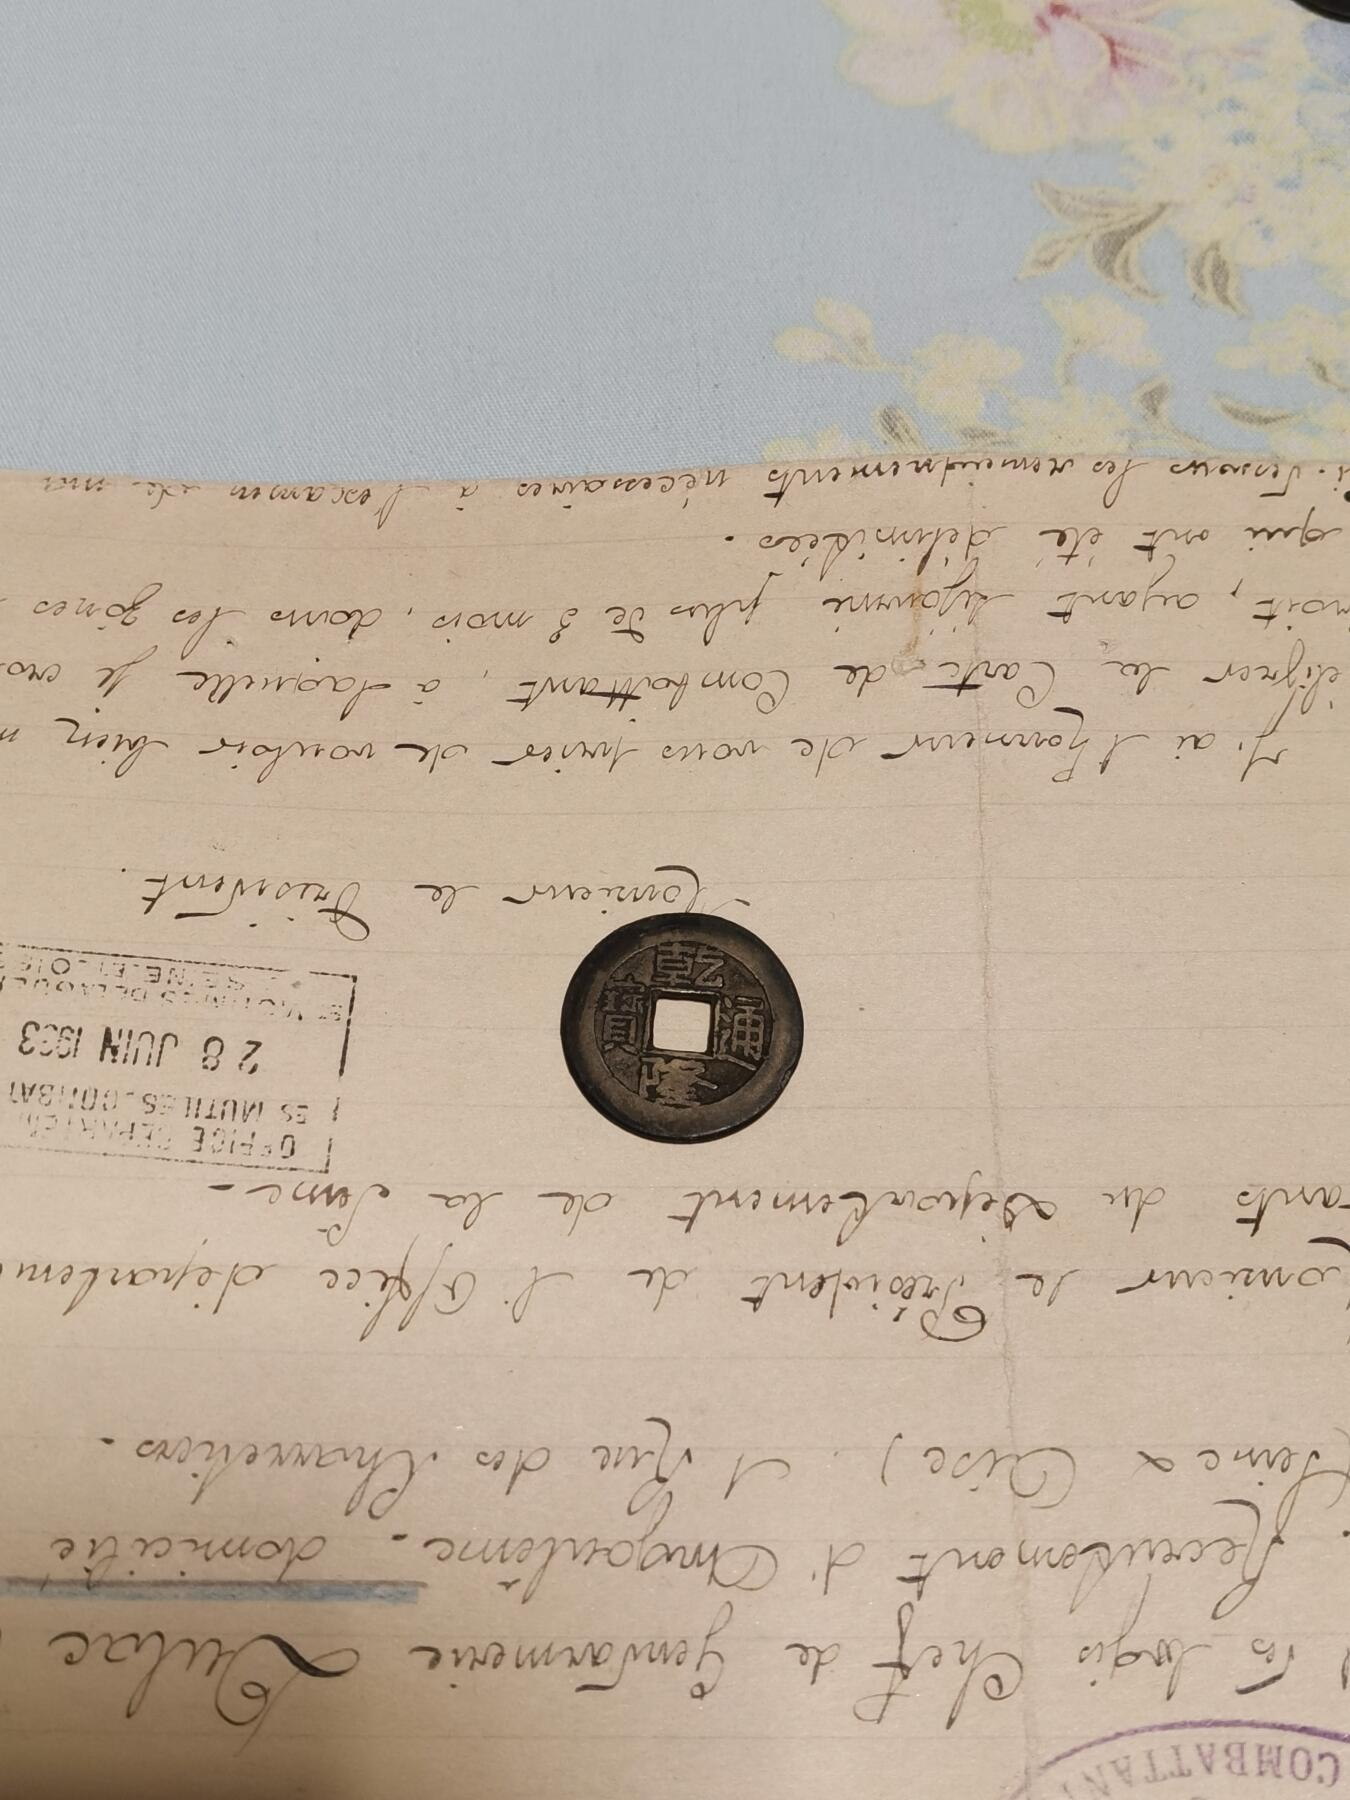 COMBATTAN
des logis Chef de Gendarmerie Dulac
Recrutement d'Angoulême - domicilié
(Seine & Oise) . 1 Rue des Charretiers.
Monsieur le Président de l'Office départem
tants du Département de la Seine -
OFFICE DEPARTEM
ES MUTILES-COMBAT
28 JUIN 1933
ET VICTIMES DE LA GUER
SEINE-ET-OISE
乾隆通寳
Monsieur le Président.
J'ai l'honneur de vous prier de vouloir bien m
délivrer la Carte de Combattant, à laquelle je croi
droit, ayant séjourné plus de 3 mois, dans les zônes
qui ont été délimitées.
Ci-dessous les renseignements nécessaires à l'examen de ma